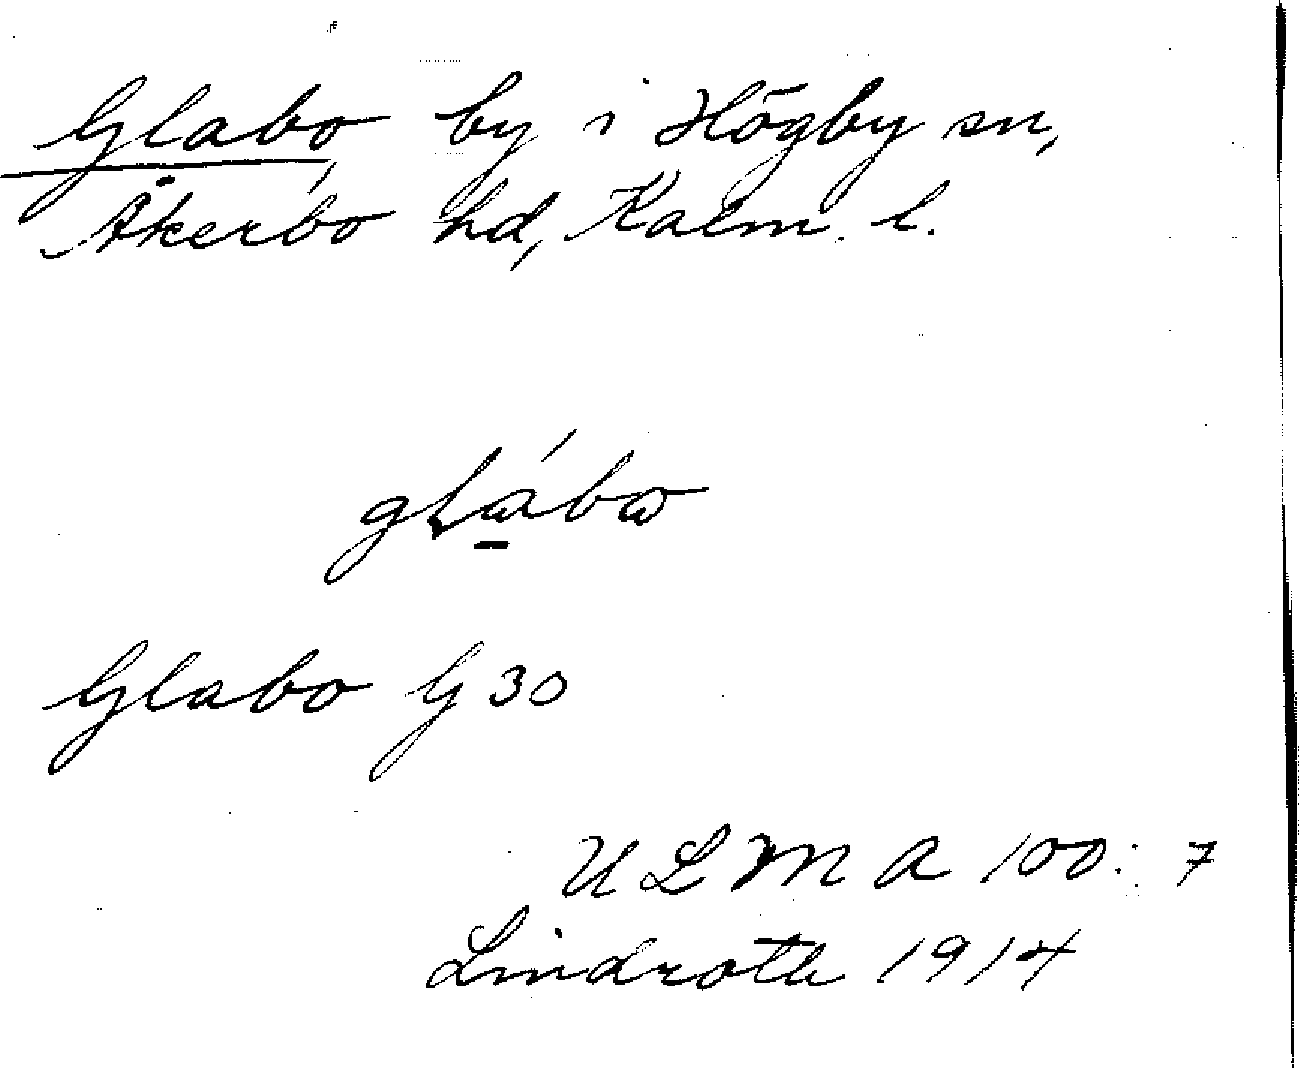 Glabo by i Högby sn,
Åkerbo hd, Kalm. l.
gLábω
Glabo G 30
ULMA 100:7
Lindroth 1914